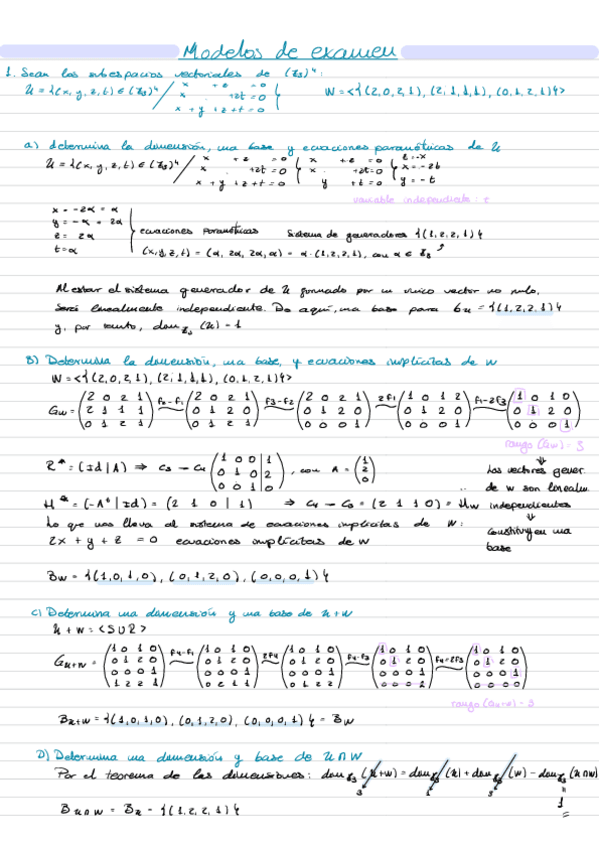 Modelos de examen
1. Sean los subespacios vectoriales de (Z3)⁴:
U = {(x, y, z, t) ∈ (Z3)⁴ / x + z = 0
x + 2t = 0
x + y + z + t = 0}
W = <{(2,0,2,1), (2,1,1,1), (0,1,2,1)}>
a) determina la dimensión, una base y ecuaciones paramétricas de U
U = {(x, y, z, t) ∈ (Z3)⁴ / x + z = 0 x + z = 0 z = -x
x + 2t = 0 x + 2t = 0 x = -2t
x + y + z + t = 0 y + t = 0 y = -t
variable independiente: t
x = -2α = α
y = -α = 2α
z = 2α
t = α
ecuaciones paramétricas Sistema de generadores {(1,2,2,1)}
(x,y,z,t) = (α, 2α, 2α, α) = α·(1,2,2,1), con α ∈ Z3
Al estar el sistema generador de U formado por un único vector no nulo,
será linealmente independiente. De aquí, una base para Bu = {(1,2,2,1)}
y, por tanto, dim Z3 (U) = 1
B) Determina la dimensión, una base, y ecuaciones implícitas de W
W = <{(2,0,2,1), (2,1,1,1), (0,1,2,1)}>
Gw = (2 0 2 1 F2-F1 (2 0 2 1 F3-F2 (2 0 2 1 2F1 (1 0 1 2 F1-2F3 (1 0 1 0
2 1 1 1 0 1 2 0 0 1 2 0 0 1 2 0 0 1 2 0
0 1 2 1) 0 1 2 1) 0 0 0 1) 0 0 0 1) 0 0 0 1)
rango (Gw) = 3
R* = (Id | A) ⇒ C3 - C4 (1 0 0 | 1
0 1 0 | 2
0 0 1 | 0), con A = (1
2
0)
los vectores gener.
de W son linealm.
independientes
constituyen una
base
H* = (-Aᵗ | Id) = (2 1 0 | 1) ⇒ C4 - C3 = (2 1 1 0) = Hw
Lo que nos lleva al sistema de ecuaciones implícitas de W:
2x + y + z = 0 ecuaciones implícitas de W
Bw = {(1,0,1,0), (0,1,2,0), (0,0,0,1)}
C) Determina una dimensión y una base de U+W
U + W = <S U R>
Gu+w = (1 0 1 0 F4-F1 (1 0 1 0 2F4 (1 0 1 0 F4-F3 (1 0 1 0 F4=2F3 (1 0 1 0
0 1 2 0 0 1 2 0 0 1 2 0 0 1 2 0 0 1 2 0
0 0 0 1 0 0 0 1 0 0 0 1 0 0 0 1 0 0 0 1
1 2 2 1) 0 2 1 1)
rango (Gu+w) = 3
Bu+w = {(1,0,1,0), (0,1,2,0), (0,0,0,1)} = Bw
D) Determina una dimensión y base de U∩W
Por el teorema de las dimensiones: dim Z3 (U+W) = dim Z3 (U) + dim Z3 (W) - dim Z3 (U∩W)
3 1 3 1
Bu∩w = Bu = {(1,2,2,1)}